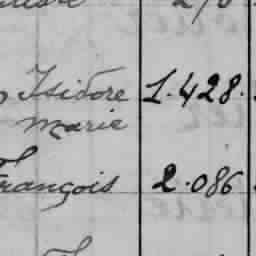 Isidore 1.428.
Marie
François 2.086